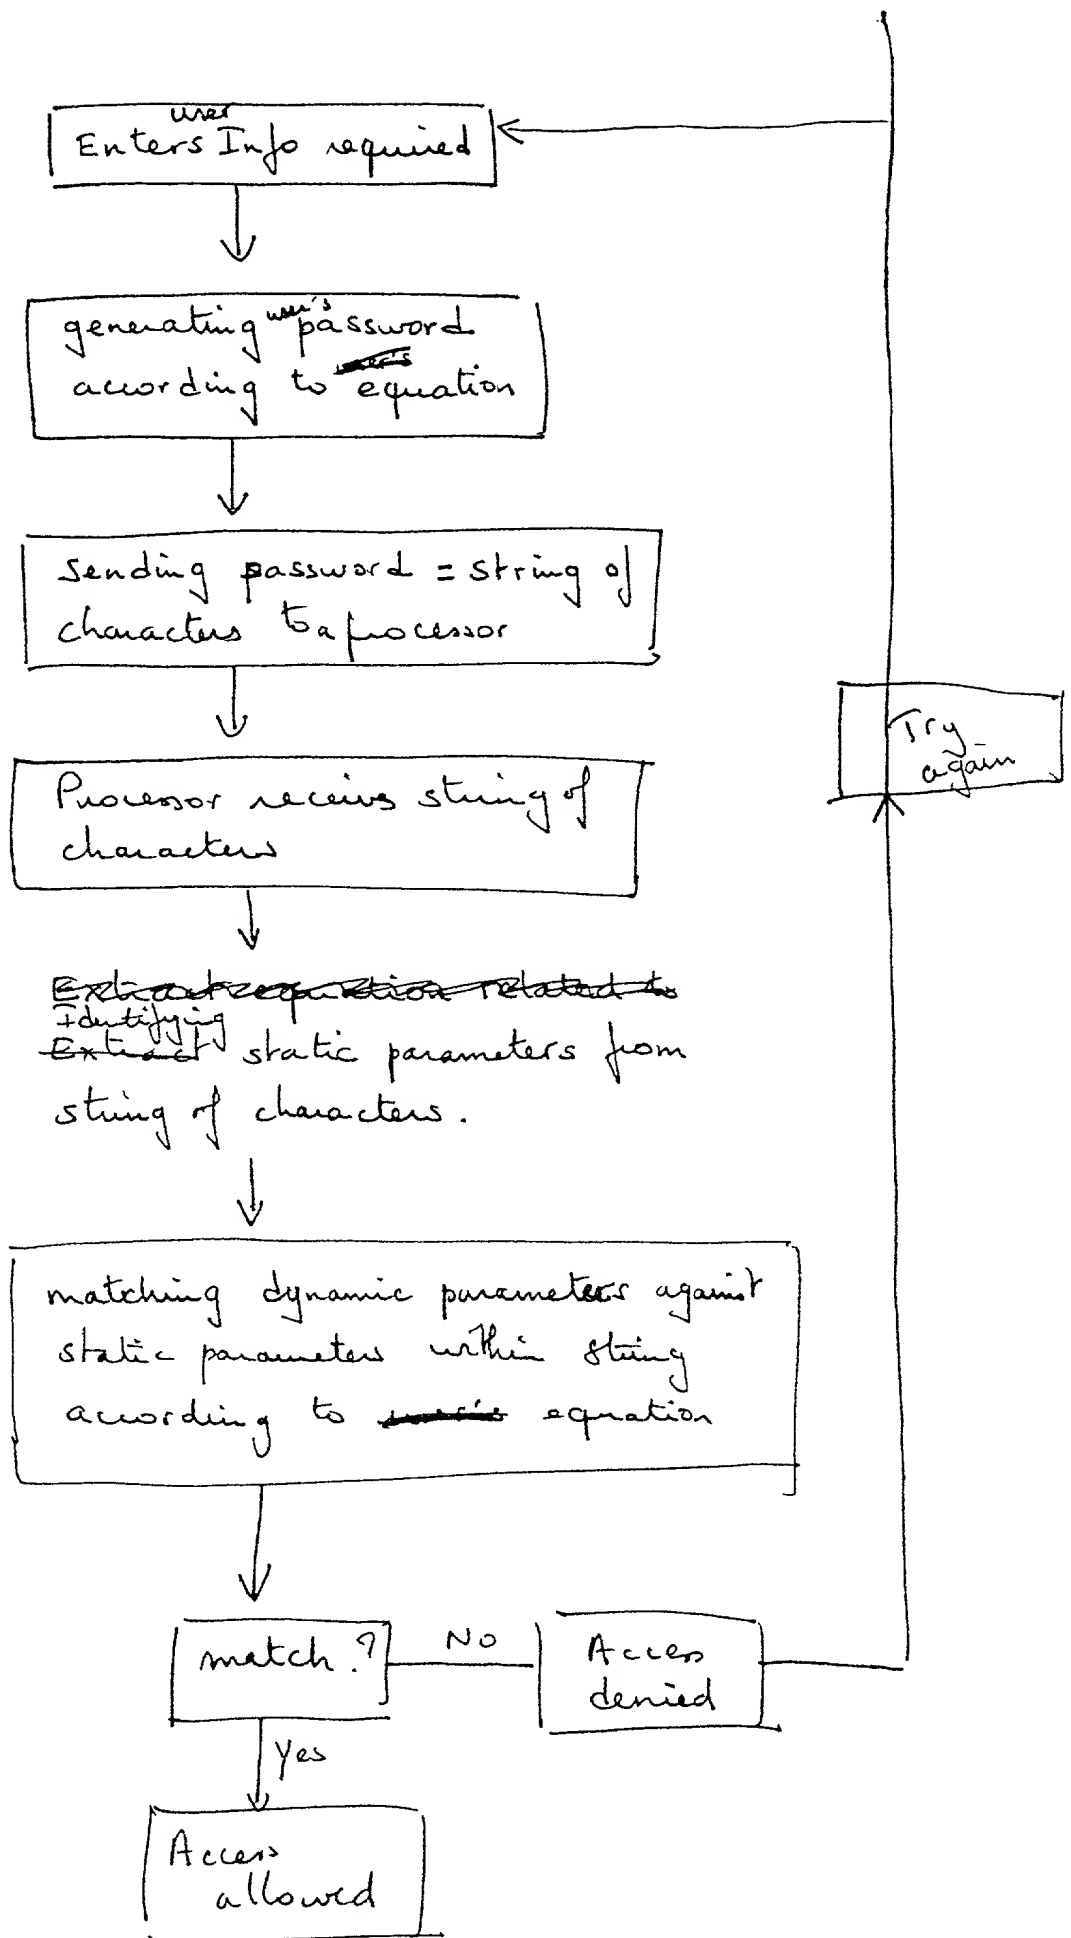 user
Enters Info required
generating user's password
according to equation
Sending password = string of
characters to a processor
Try
again
Processor receives string of
characters
Extract equation related to
Identifying
Extract static parameters from
string of characters.
matching dynamic parameters against
static parameters within string
according to user's equation
match?
No
Access
denied
Yes
Access
allowed